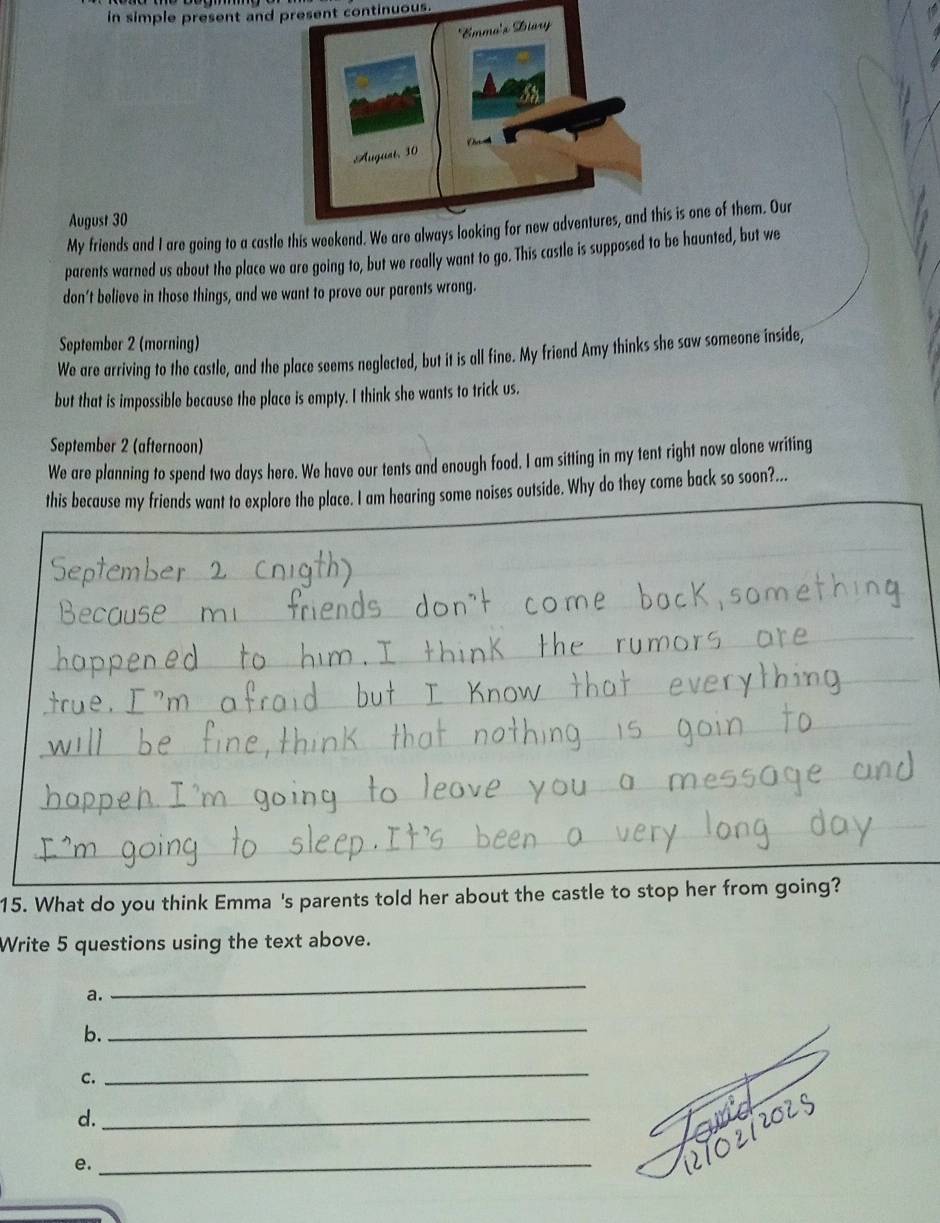 in simple present and present continuous.
Emma's Diary
August, 30
August 30
My friends and I are going to a castle this weekend. We are always looking for new adventures, and this is one of them. Our
parents warned us about the place we are going to, but we really want to go. This castle is supposed to be haunted, but we
don't believe in those things, and we want to prove our parents wrong.
September 2 (morning)
We are arriving to the castle, and the place seems neglected, but it is all fine. My friend Amy thinks she saw someone inside,
but that is impossible because the place is empty. I think she wants to trick us.
September 2 (afternoon)
We are planning to spend two days here. We have our tents and enough food. I am sitting in my tent right now alone writing
this because my friends want to explore the place. I am hearing some noises outside. Why do they come back so soon?...
September 2 (nigth)
Because mi friends don't come back, something
happened to him. I think the rumors are
true. I'm afraid but I know that everything
will be fine, think that nothing is goin to
happen. I'm going to leave you a message and
I'm going to sleep. It's been a very long day
15. What do you think Emma 's parents told her about the castle to stop her from going?
Write 5 questions using the text above.
a.
b.
c.
d.
e.
12/02/2025